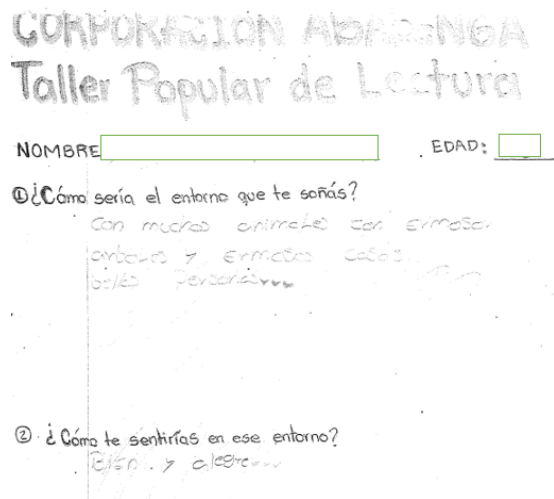 CORPORACIÓN
Taller Popular de Lectura
NOMBRE
EDAD:
① ¿Cómo sería el entorno que te soñás?
Con muchos animales con ermosos
arboles y ermosas casas.
bellas personas...
② ¿Cómo te sentirías en ese entorno?
Bien. y alegre...